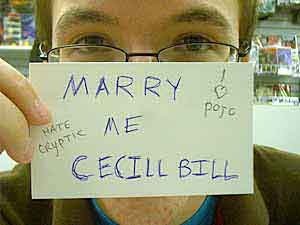 MARRY
ME
CECILL BILL
HATE
CRYPTIC
!
POJO